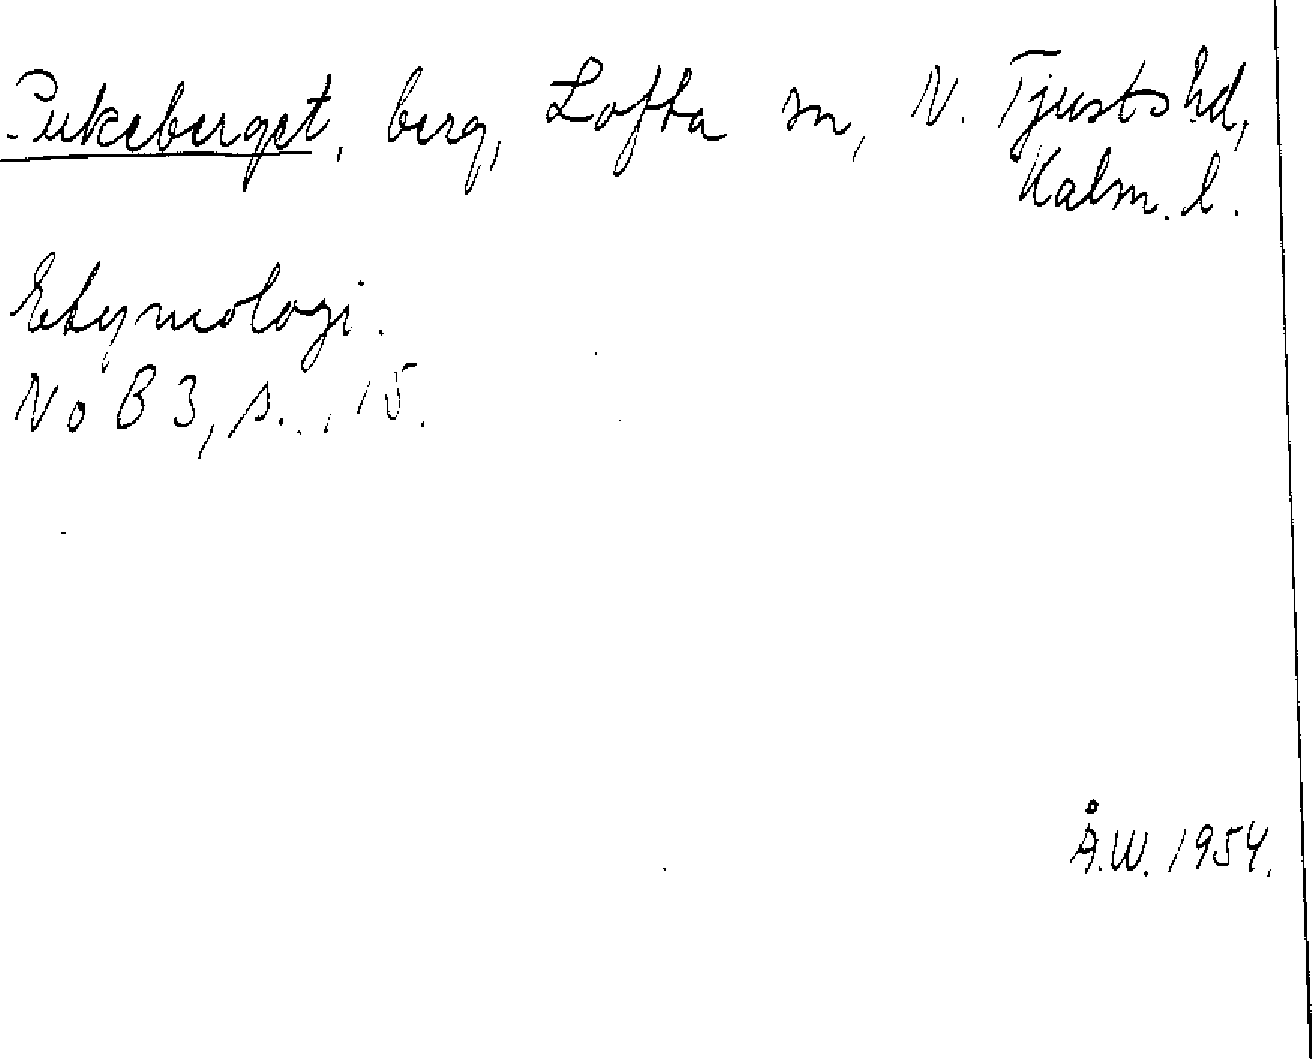 Pukeberget, berg, Lofta sn, N. Tjusts hd,
Kalm. l.
Etymologi.
NoB 3, s. 15.
Å.W. 1954.